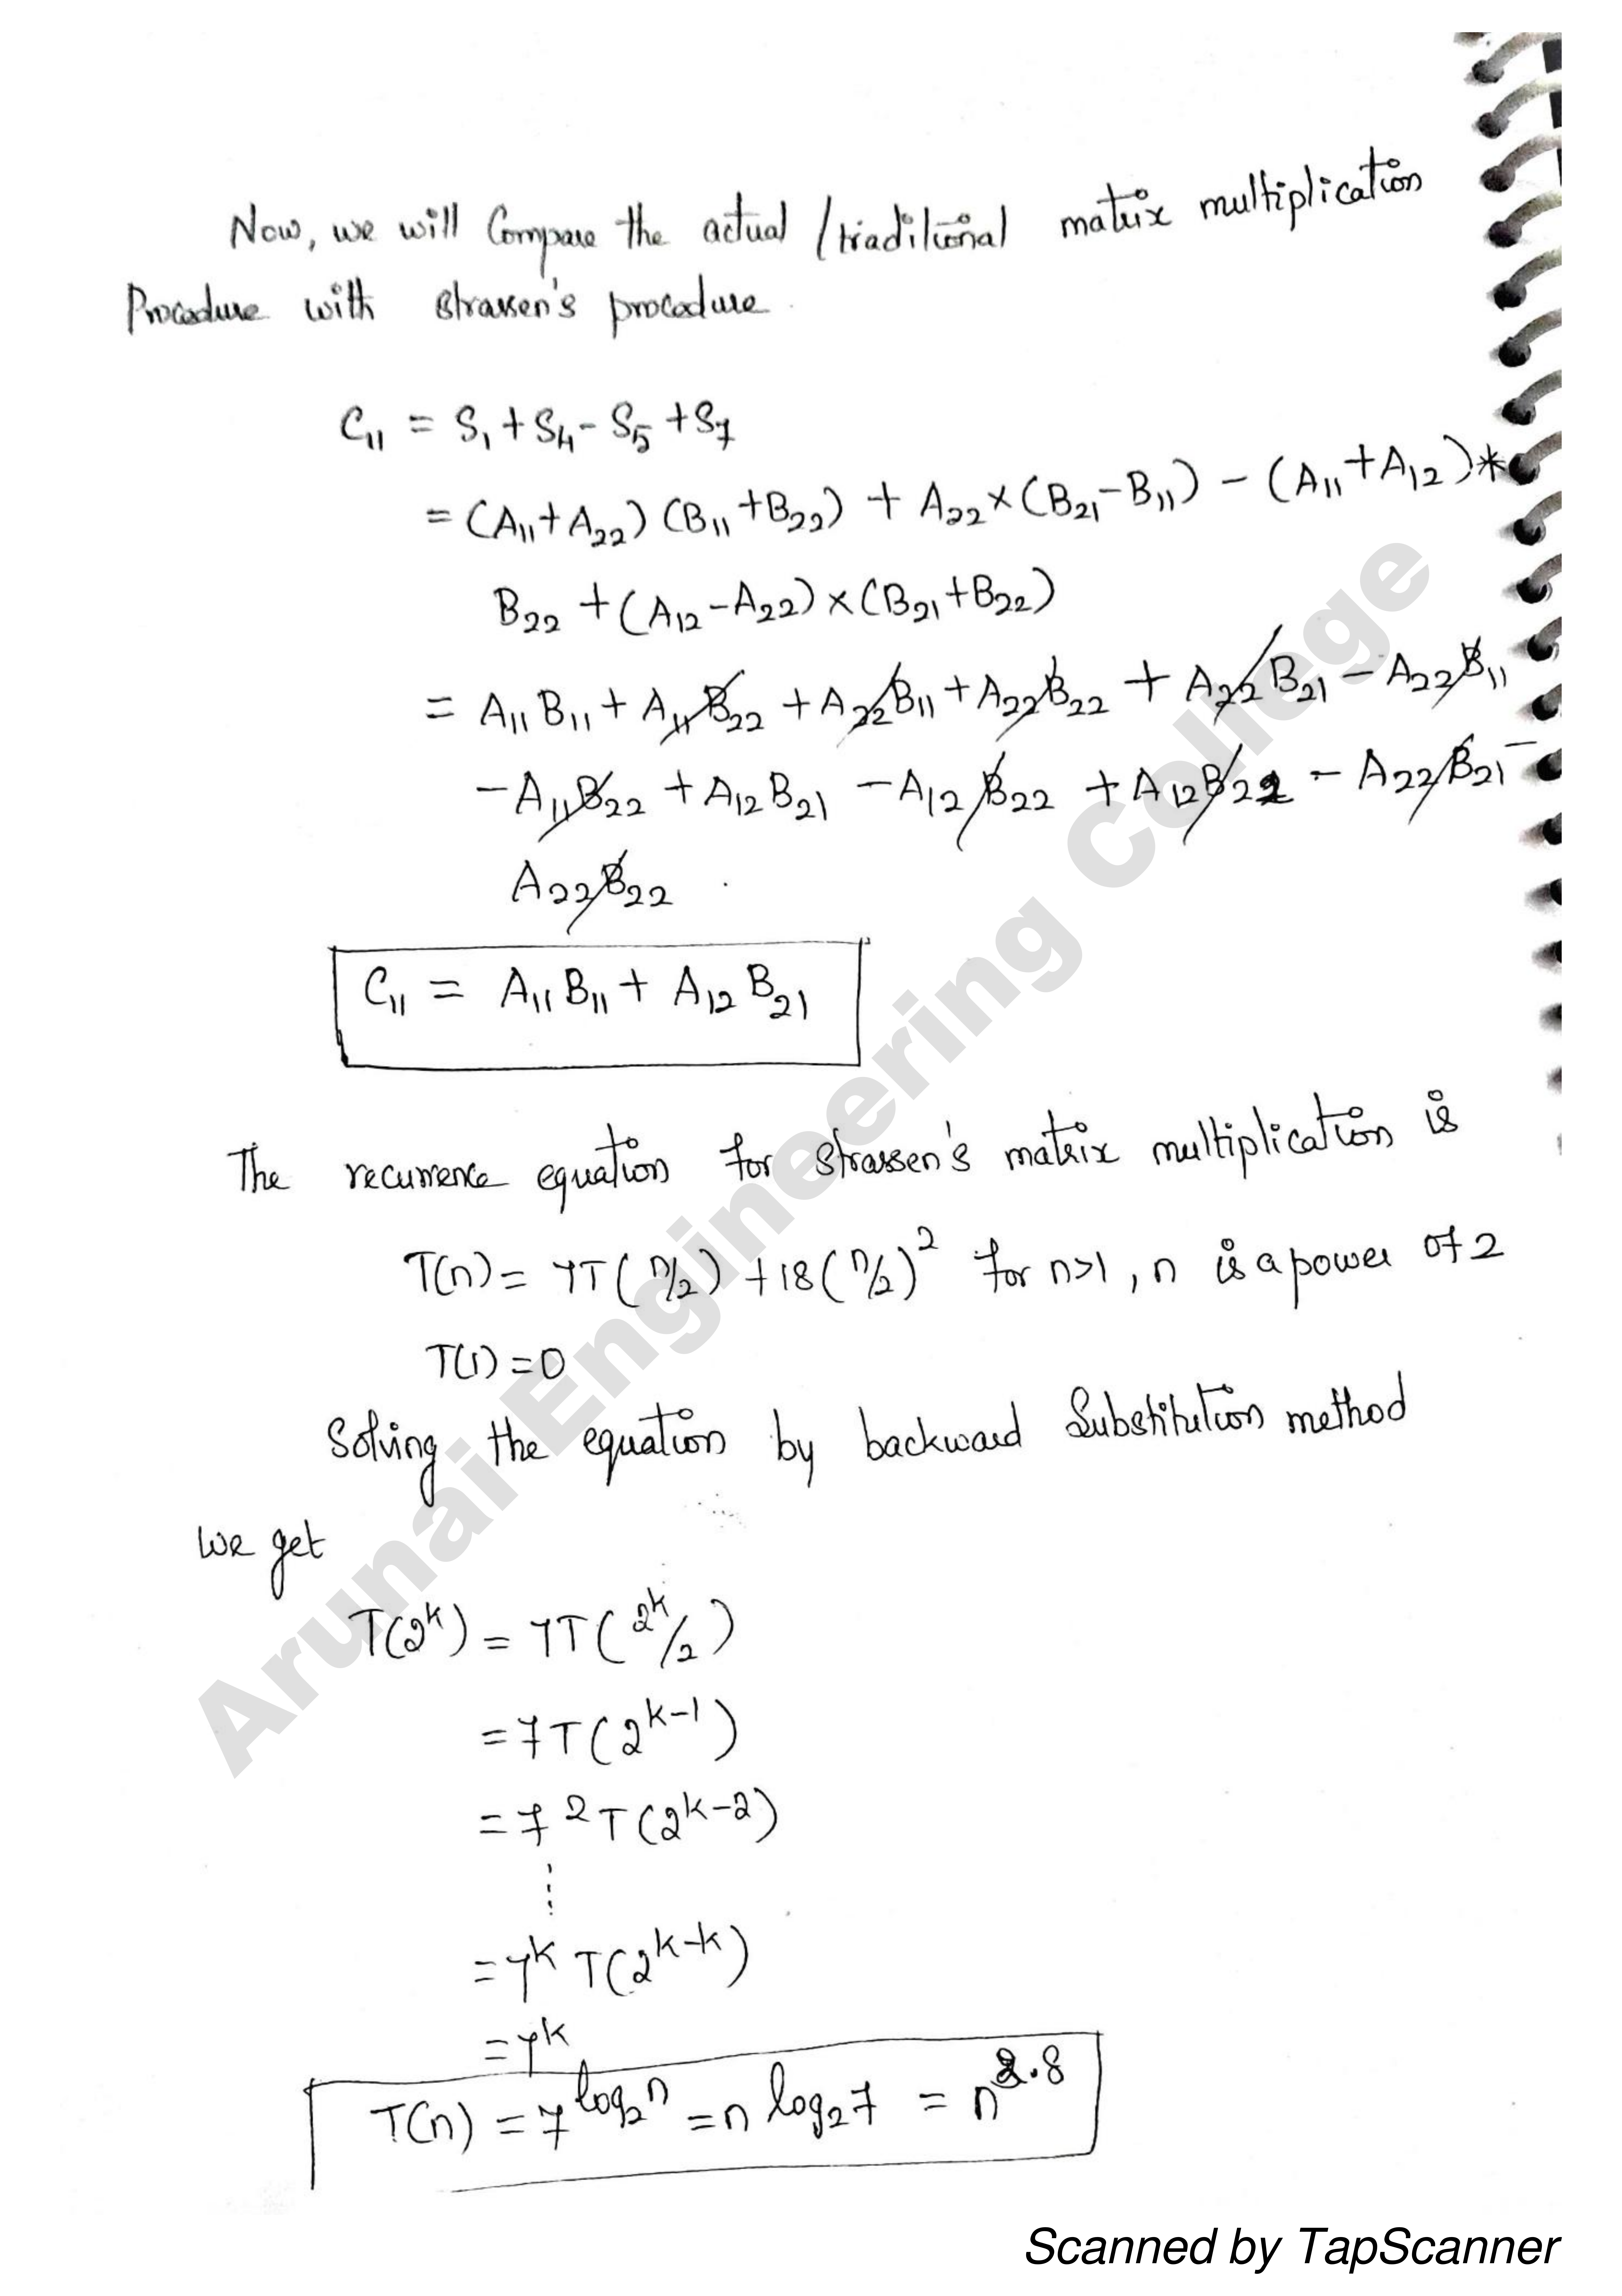 Now, we will Compare the actual / traditional matrix multiplication
Procedure with strassen's procedure.
C₁₁ = S₁ + S₄ - S₅ + S₇
= (A₁₁ + A₂₂) (B₁₁ + B₂₂) + A₂₂ × (B₂₁ - B₁₁) - (A₁₁ + A₁₂) *
B₂₂ + (A₁₂ - A₂₂) × (B₂₁ + B₂₂)
= A₁₁ B₁₁ + A₁₁ B₂₂ + A₂₂ B₁₁ + A₂₂ B₂₂ + A₂₂ B₂₁ - A₂₂ B₁₁
- A₁₁ B₂₂ + A₁₂ B₂₁ - A₁₂ B₂₂ + A₁₂ B₂₂ - A₂₂ B₂₁ -
A₂₂ B₂₂
C₁₁ = A₁₁ B₁₁ + A₁₂ B₂₁
The recurrence equation for strassen's matrix multiplication is
T(n) = 7T(n/2) + 18(n/2)² for n>1, n is a power of 2
T(1) = 0
Solving the equation by backward Substitution method
we get
T(2ᵏ) = 7T(2ᵏ/2)
= 7T(2ᵏ⁻¹)
= 7² T(2ᵏ⁻²)
⋮
= 7ᵏ T(2ᵏ⁻ᵏ)
= 7ᵏ
T(n) = 7^log₂n = n log₂7 = n^2.8
Arunai Engineering College
Scanned by TapScanner